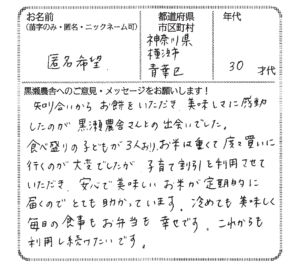 お名前
(苗字のみ・匿名・ニックネーム可)
匿名希望
都道府県
市区町村
神奈川県
横浜市
青葉区
年代
30 才代
黒瀬農舎へのご意見・メッセージをお願いします!
知り合いから お餅をいただき 美味しさに感動
したのが 黒瀬農舎さんとの出会いでした。
食べ盛りの子どもが3人おり、お米は重くて 度々買いに
行くのが大変でしたが 子育て割引も利用させて
いただき、安心で美味しい お米が定期的に
届くので とても助かっています。冷めても 美味しく
毎日の食事も お弁当も 幸せです。これからも
利用し続けたいです。